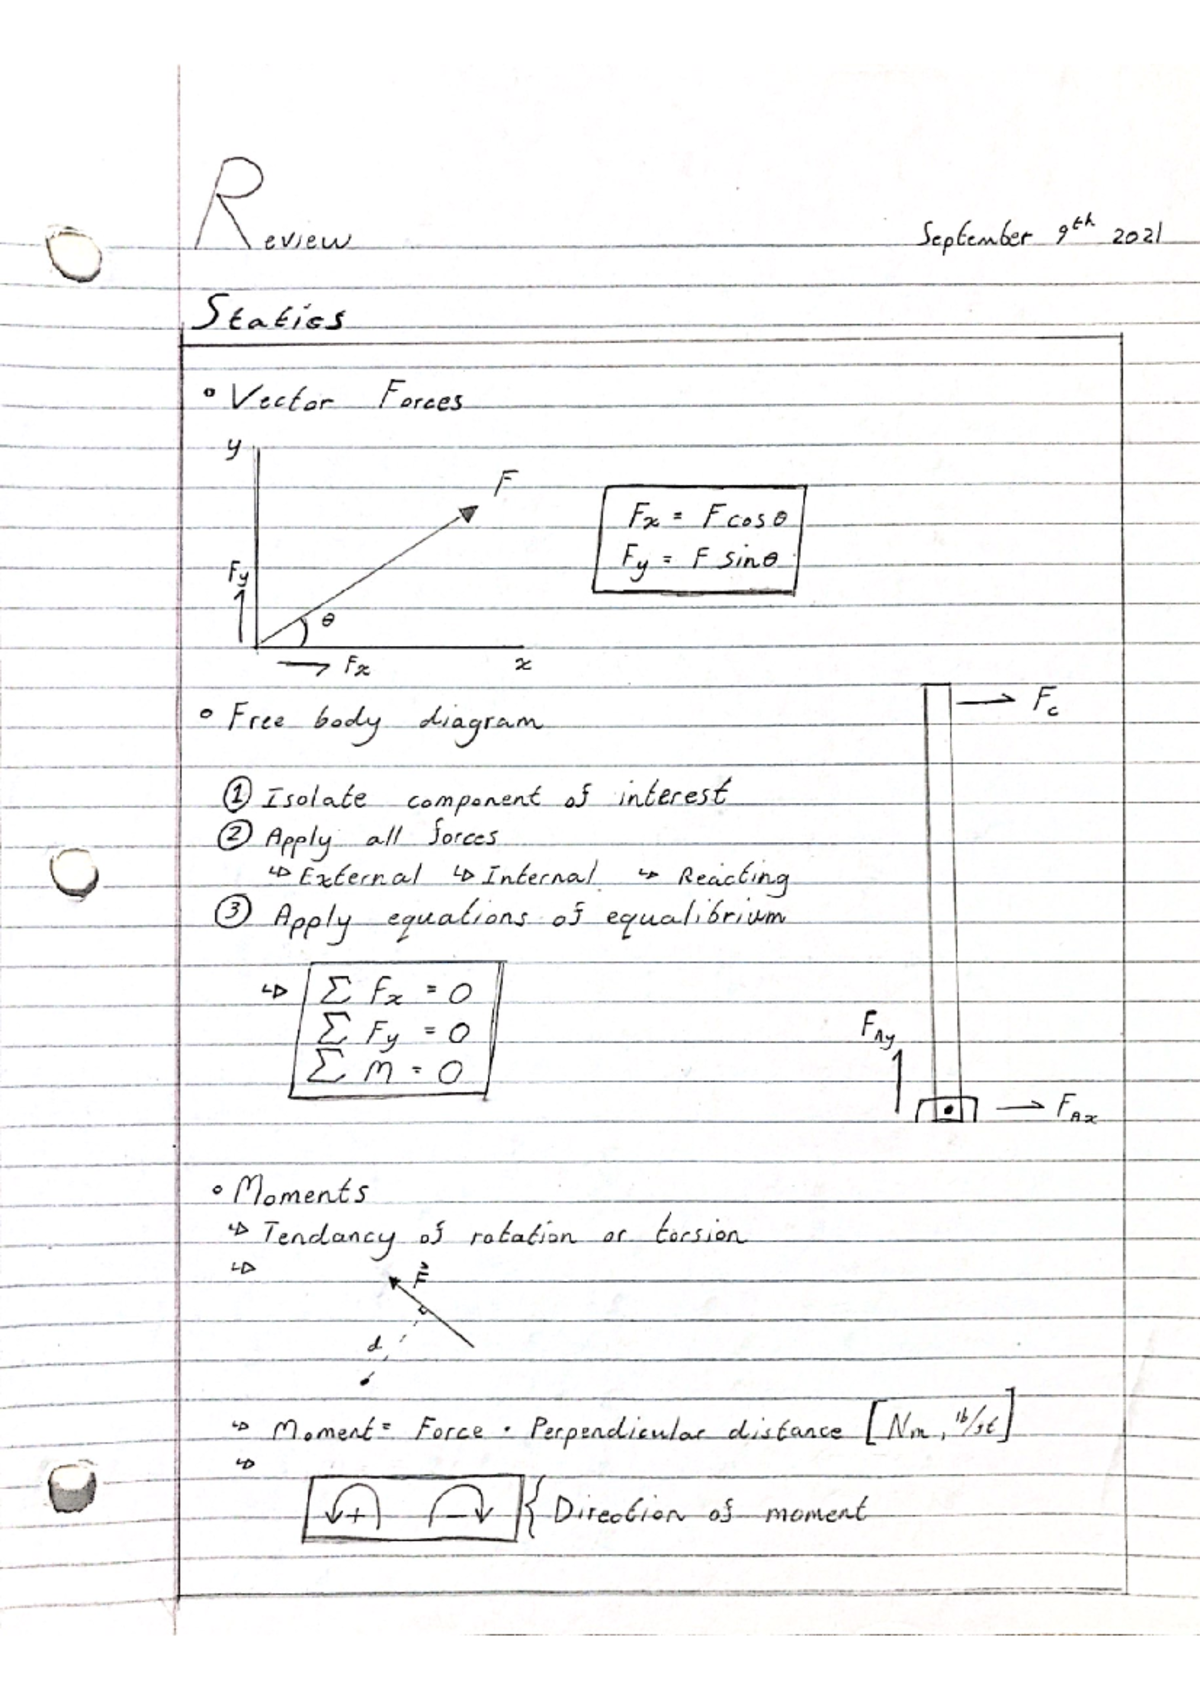 Review
September 9th 2021
Statics
• Vector Forces
y
F
Fx = F cos θ
Fy = F sin θ
Fy
θ
Fx
x
• Free body diagram
Fc
① Isolate component of interest
② Apply all forces
↳ External ↳ Internal ↳ Reacting
③ Apply equations of equalibrium
↳ Σ Fx = 0
Σ Fy = 0
Σ M = 0
FAy
FAx
• Moments
↳ Tendancy of rotation or torsion
↳
F⃗
d
↳ Moment = Force · Perpendicular distance [Nm, lb/ft]
↳
+ − { Direction of moment